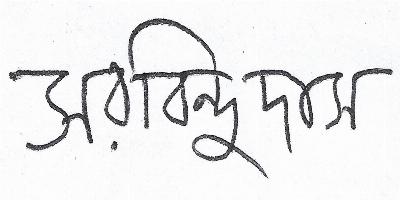 অরবিন্দু দাস